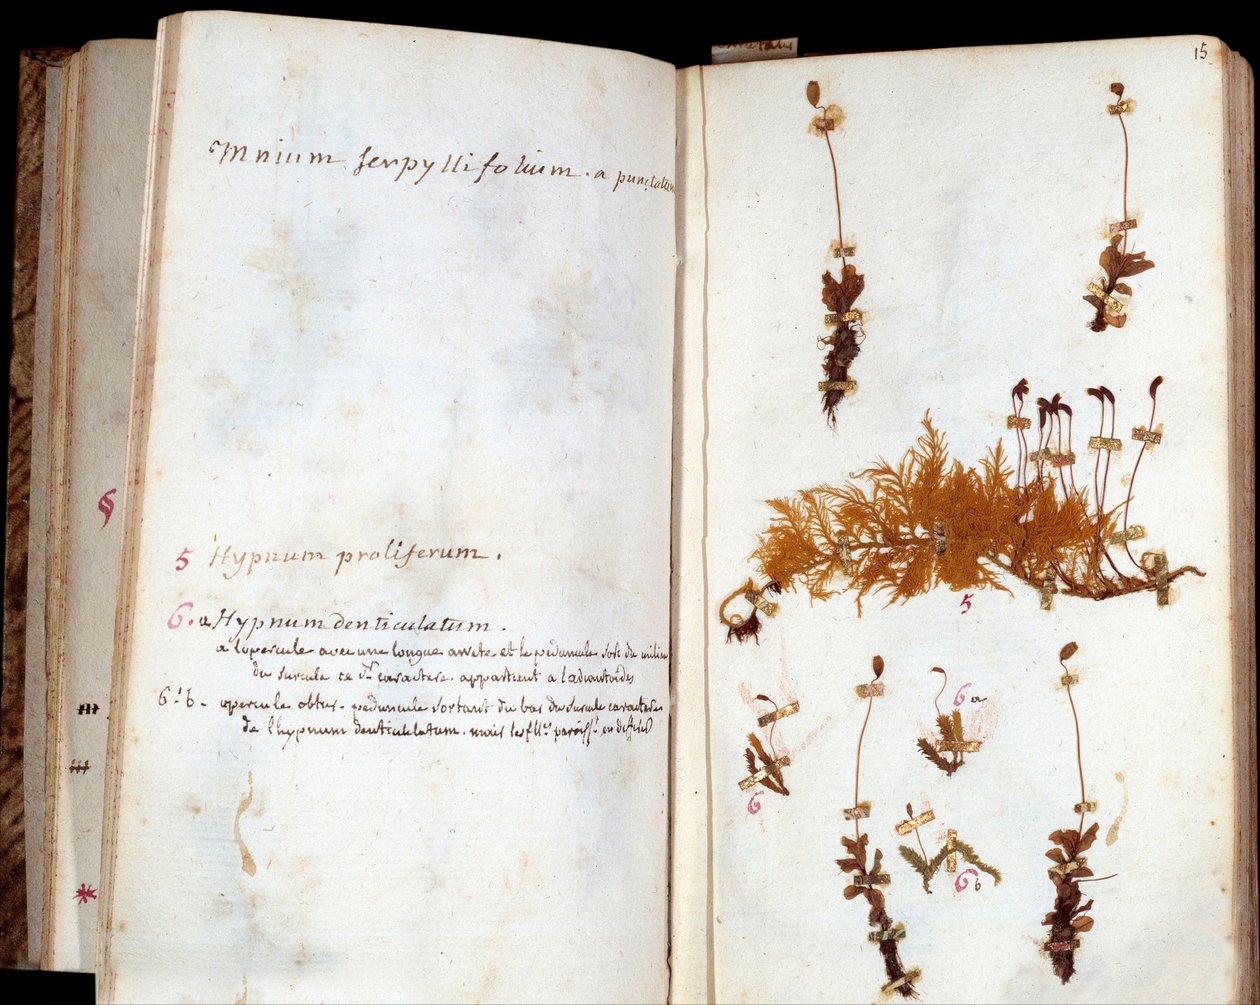 Mnium serpyllifolium. a punctatum
5 Hypnum proliferum.
6. a Hypnum denticulatum.
a lopercule avec une longue arrete et le peduncule sort du milieu
du surcule ce dr. caractere appartient a ladiantoides
6. b. opercule obtus. peduncule sortant du bas du surcule caractere
de lhypnum denticulatum. mais les
§
*
15
5
6
6 a
6 b